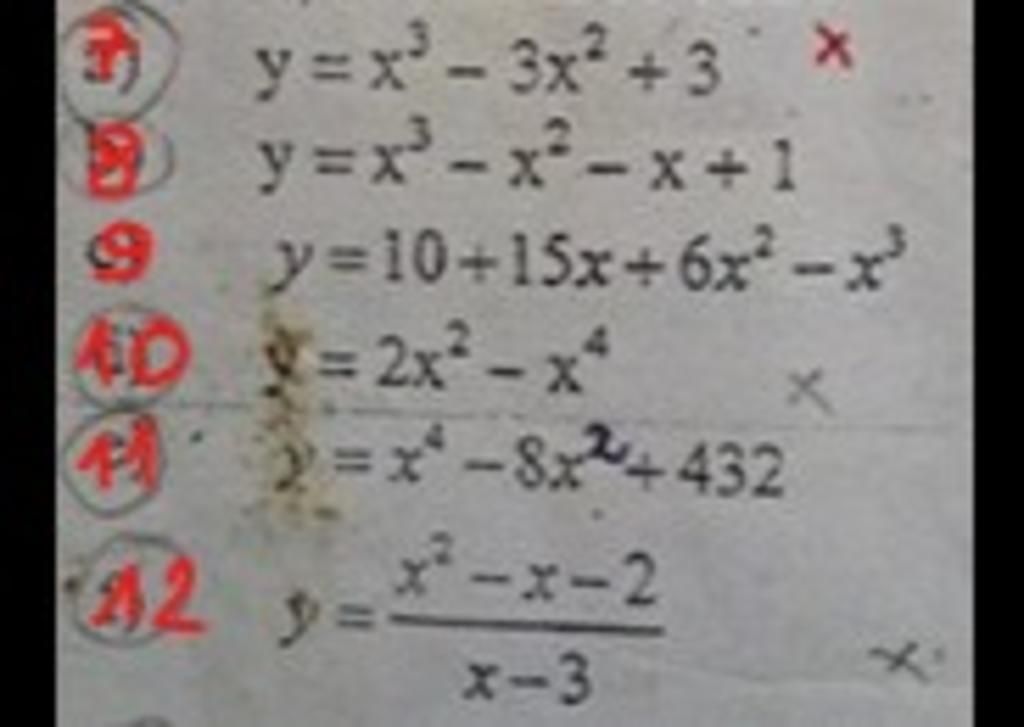 7 y = x³ − 3x² + 3 x
8 y = x³ − x² − x + 1
9 y = 10 + 15x + 6x² − x³
10 y = 2x² − x⁴ x
11 y = x⁴ − 8x² + 432
12 y = (x² − x − 2)/(x − 3) x